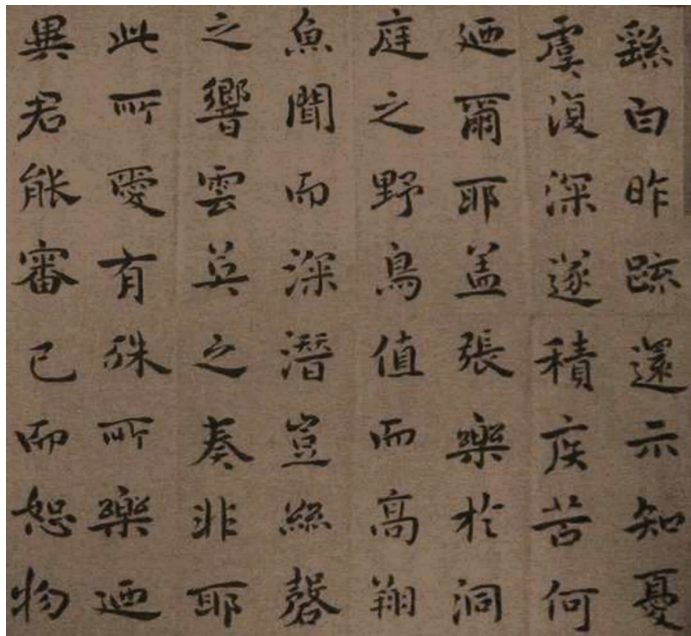 繇白昨疏還示知憂
虞復深遂積疾苦何
迺爾耶盖張樂於洞
庭之野鳥值而高翔
魚聞而深潛豈絲磬
之響雲英之奏非耶
此所愛有殊所樂迺
異君能審己而恕物